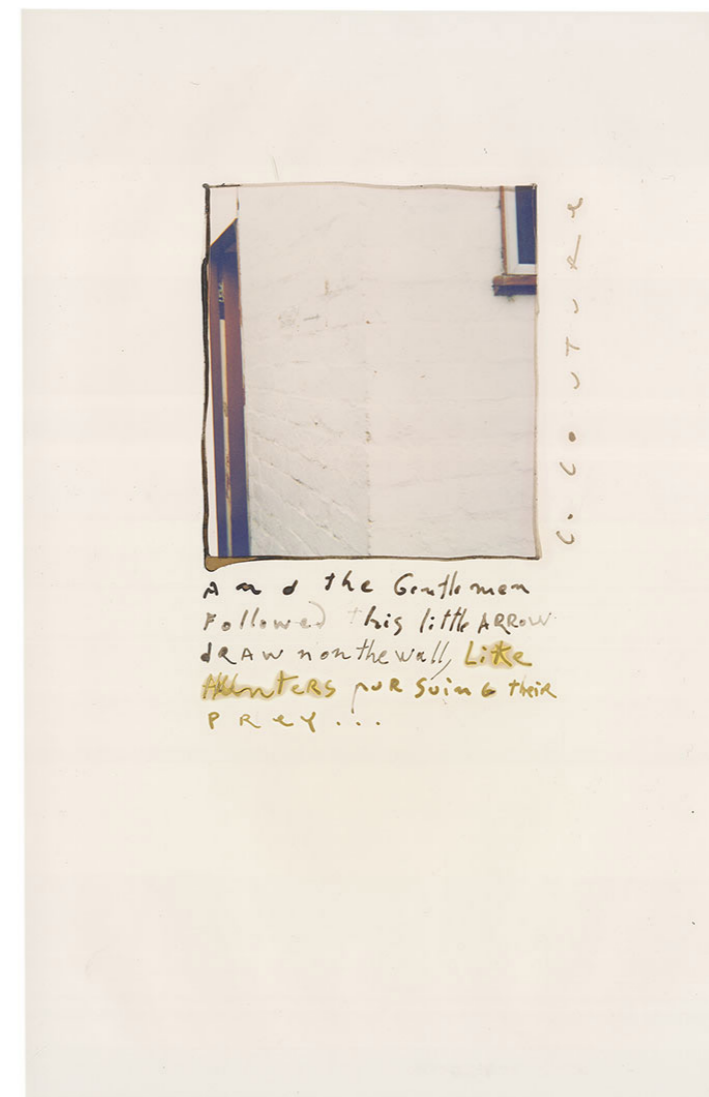 And the Gentlemen
Followed this little ARROW
dRAW n on the wall, Like
Hunters puRSuinG their
PReY...
C. COUTURe